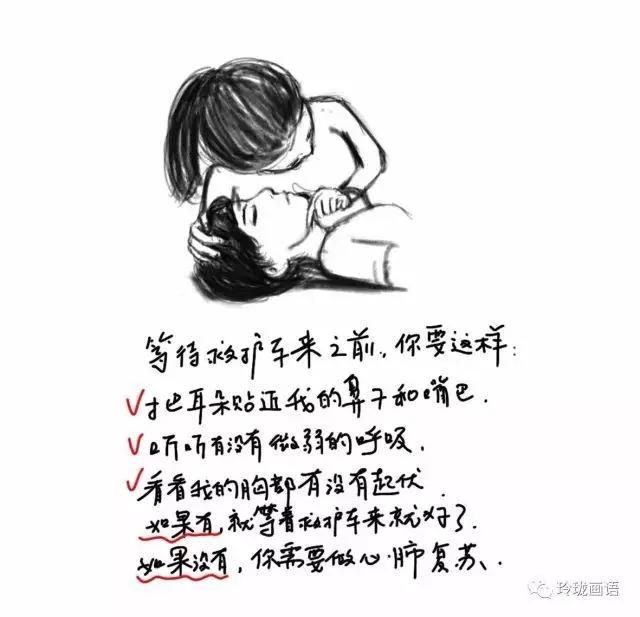 等待救护车来之前,你要这样:
✓把耳朵贴近我的鼻子和嘴巴.
✓听听有没有微弱的呼吸.
✓看看我的胸部有没有起伏.
如果有,就等着救护车来就好了.
如果没有,你需要做心肺复苏.
玲珑画语